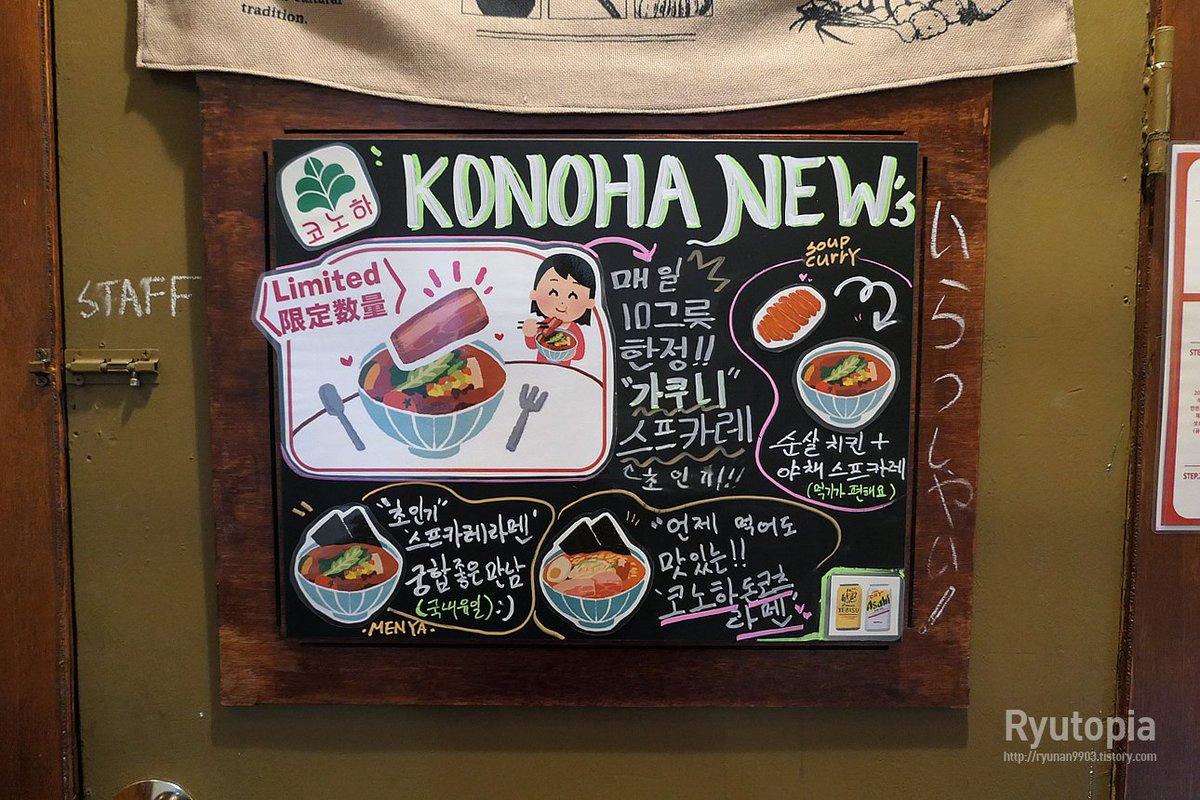 tradition.
STAFF
코노하
KONOHA NEW's
Limited
限定数量
매일
10그릇
한정!!
"가쿠니"
스프카레
초인기!!
SOUP
CURRY
순살 치킨 +
야채 스프카레
(먹기가 편해요)
"초인기"
스프카레라멘
궁합 좋은 만남
(국내유일) :)
MENYA
"언제 먹어도
맛있는!!
코노하 돈코츠
라멘"
YEBISU
Asahi
いらっしゃい!
STEP
STEP.
Ryutopia
http://ryunan9903.tistory.com